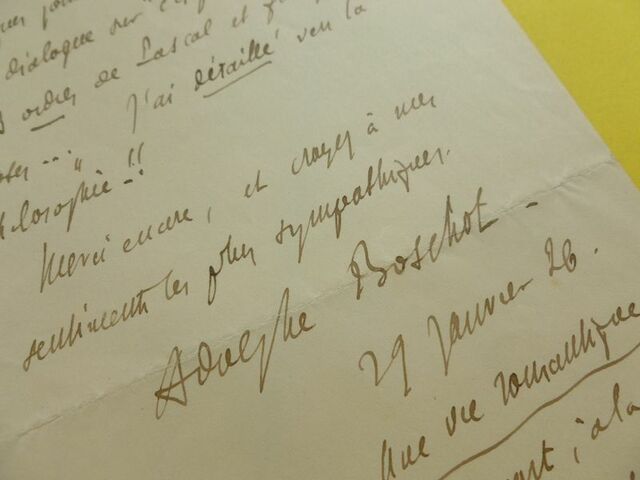 dialogue sur
ordres de Pascal et
J'ai détaillé vers la
Merci encore, et croyez à mes
sentiments les plus sympathiques.
Adolphe Boschot -
29 Janvier 26.
Une vie romantique